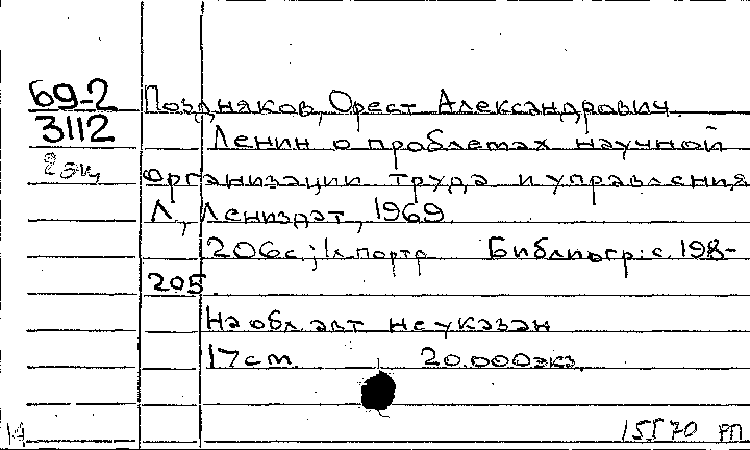 69-2 Поздняков, Орест Александрович.
3112 Ленин о проблемах научной
2 экз организации труда и управления
Л., Лениздат, 1969.
206 с.; 1 л. портр Библиогр: с. 198-
205.
На обл авт не указан
17 см. 20.000 экз.
15570 РП